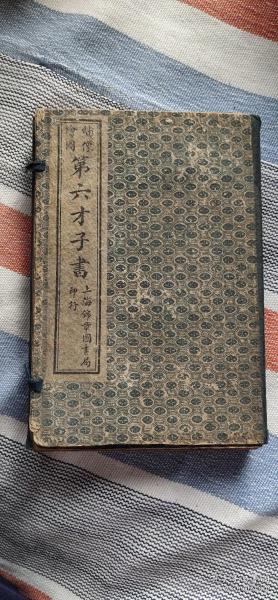 繡像
繪圖
第六才子書
上海錦章圖書局
印行